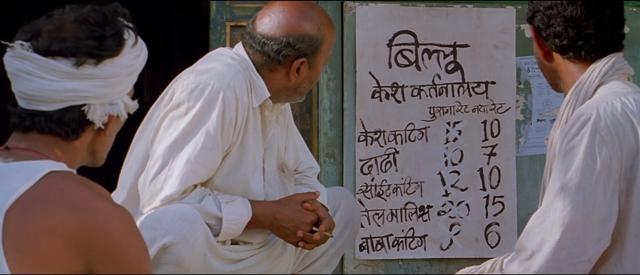 बिल्लू
केश कर्तनालय
पुराना रेट नया रेट
केश कटिंग 15 10
दाढ़ी 10 7
साईट कटिंग 12 10
तेल मालिश 20 15
बाबा कंटिग 8 6